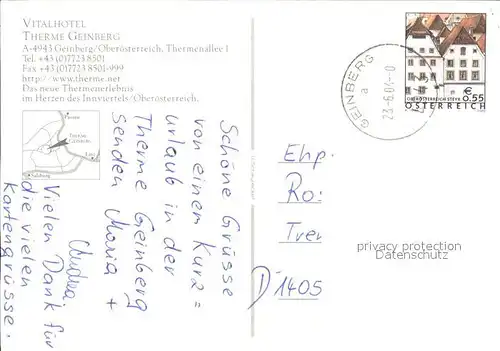 VITALHOTEL
THERME GEINBERG
A-4943 Geinberg/Oberösterreich, Thermenallee 1
Tel. +43 (0)7723 8501
Fax +43 (0)7723 8501-999
http://www.therme.net
Das neue Thermenerlebnis
im Herzen des Innviertels/Oberösterreich.
Schöne Grüsse
von einem Kurz=
urlaub in der
Therme Geinberg
senden Maria +
Andrea
Vielen Dank für
die vielen
Kartengrüsse.
GEINBERG
a
23-6.04-0
€
0.55
OBERÖSTERREICH STEYR
ÖSTERREICH
Ehp.
Ro:
Tre
D 1405
privacy protection
Datenschutz